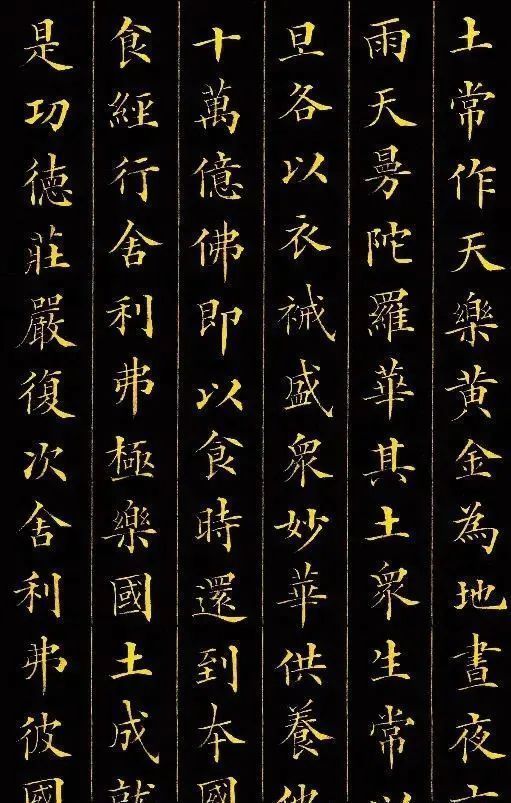 土常作天樂黄金為地晝夜
雨天曼陀羅華其土衆生常以
旦各以衣裓盛衆妙華供養他
十萬億佛即以食時還到本國
食經行舍利弗極樂國土成就
是功德莊嚴復次舍利弗彼國